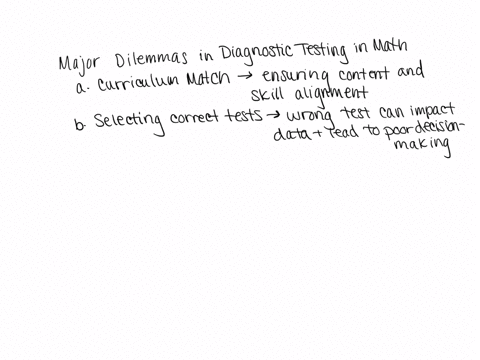 Major Dilemmas in Diagnostic Testing in Math
a. Curriculum Match → ensuring content and
skill alignment
b. Selecting correct tests → wrong test can impact
data + lead to poor decision-
making